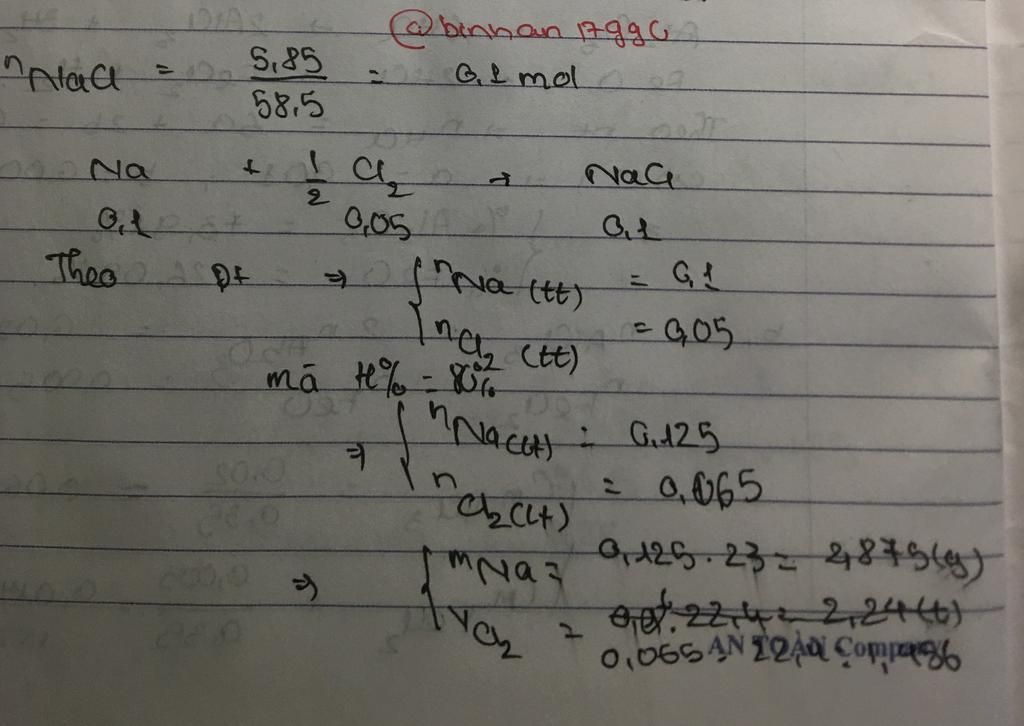 @binnan 17ggc
nNaCl = 5,85/58,5 = 0,1 mol
Na + 1/2 Cl2 → NaCl
0,1 0,05 0,1
Theo pt ⇒ { nNa (tt) = 0,1
nCl2 (tt) = 0,05
mà H% = 80%
⇒ { nNa(lt) = 0,125
nCl2(lt) = 0,065
⇒ { mNa = 0,125.23 = 2,875(g)
VCl2 = 22,4 = 2,24(l)
0,065 AN TOÀN Company